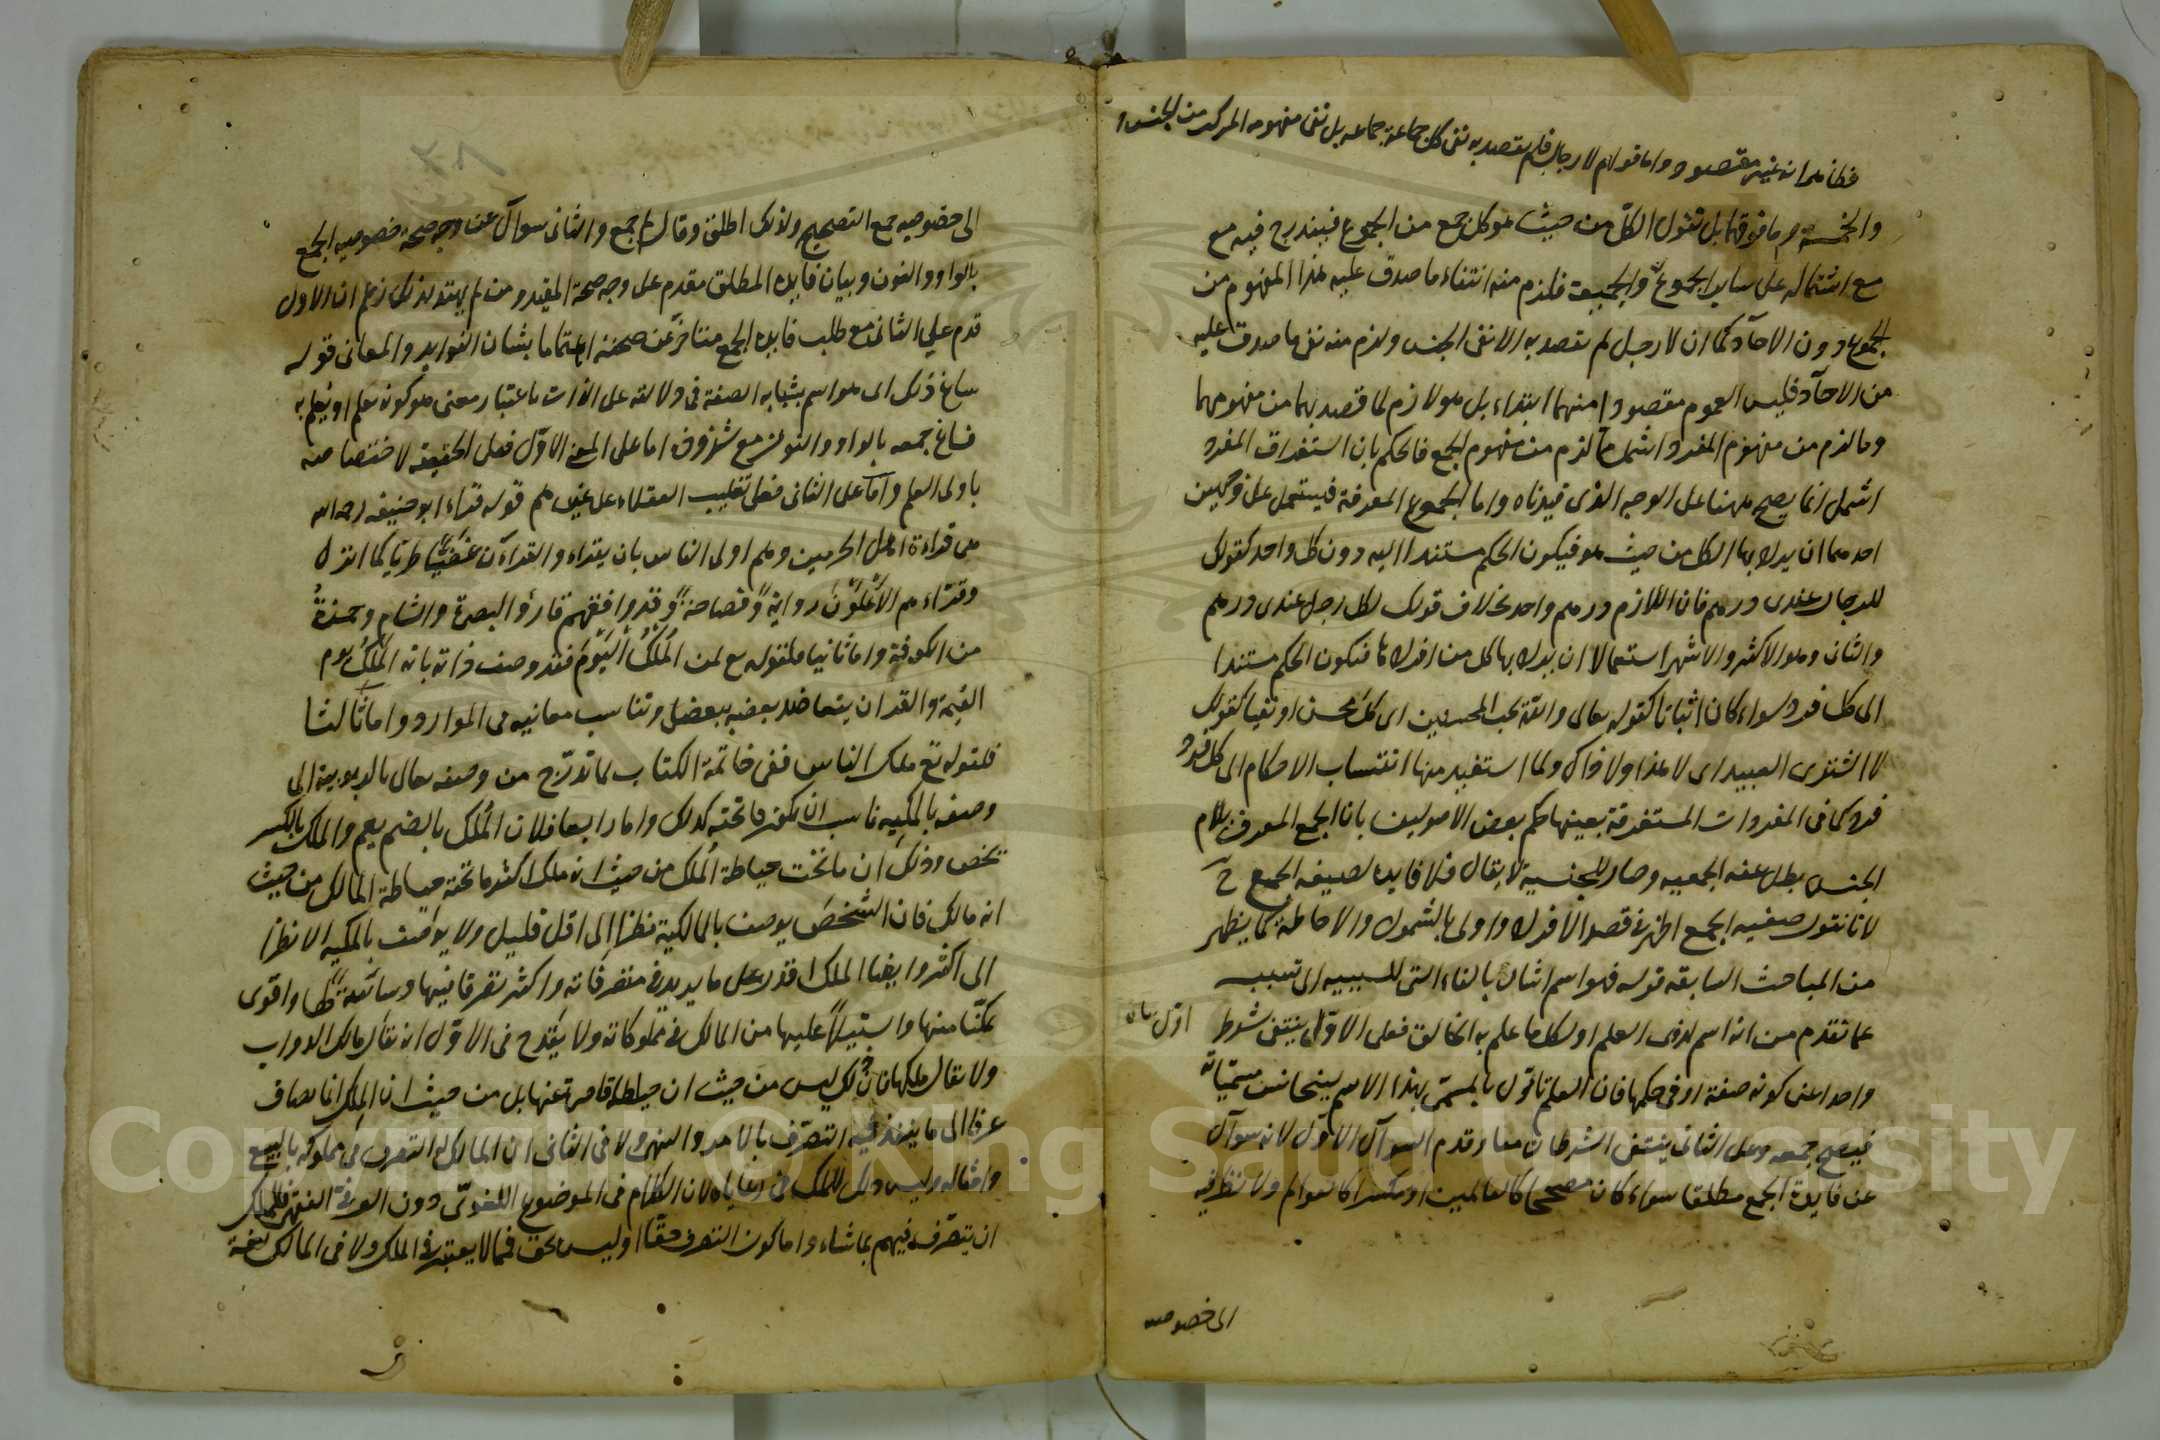 فظاهر انه غير مقصود واما قولهم لا رجال فلم يقصد به نفى كل جماعة جماعة بل نفى مفهومه المركب من الجنس و
والجمعية وما فوقها بل نقول الكل من حيث هو كل جمع من الجموع فيندرج فيه مع
مع اشتماله على ساير الجموع والجمعية فلزم منه انتفاء ما صدق عليه هذا المفهوم من
الجموع دون الآحاد كما ان لا رجل لم يقصد به الا نفى الجنس ولزم منه نفى ما صدق عليه
من الآحاد فليس العموم مقصودا منهما ابتداء بل هو لازم لما قصد بهما من مفهومهما
وما لزم من مفهوم المفرد اشمل مما لزم من مفهوم الجمع فالحكم بان استغراق المفرد
اشمل انما يصح ههنا على الوجه الذى قيدناه واما الجموع المعرفة فيستعمل على وجهين
احدهما ان يراد بها الكل من حيث هو فيكون الحكم مستندا اليه دون كل واحد كقولك
للرجال عندى درهم فان اللازم درهم واحد بخلاف قولك لكل رجل عندى درهم
والثانى وهو الاكثر والاشهر استعمالا ان يراد بها كل من افرادها فيكون الحكم مستندا
الى كل فرد سواء كان اثباتا كقوله تعالى والله يحب المحسنين اى كل محسن او نفيا كقولك
لا اشترى العبيد اى لا هذا ولا ذاك ولما استفيد منها انتساب الاحكام الى كل فرد
فرد كما فى المفردات المستغرقة بعينها حكم بعض الاصوليين بان الجمع المعرف بلام
الجنس بطل عنه الجمعيه وصار للجنسية لا يقال فلا فايدة لصيغه الجمع ح
لانا نقول صيغه الجمع اظهر فى قصد الافراد واولى بالشمول والاحاطة كما يظهر
من المباحث السابقه قوله فهو اسم اشار بالفاء التى للسببيه الى تسبب
عما تقدم من انه اسم لذوى العلم او لكل ما علم به الخالق فعلى الاول ينتفى شرط
واحد اعنى كونه صفة او فى حكمها فان العلم تاول بالمسمى بهذا الاسم ليتجانس مسمياته
فيصح جمعه وعلى الثانى ينتفى الشرطان معا وقدم السوال الاول لانه سوال
عن فايدة الجمع مطلقا سواء كان مصححا كالعالمين او مكسرا كالعوالم ولا نظر فيه
الى خصوصيه
الى خصوصيه جمع التصحيح ولذلك اطلق وقال لم جمع والثانى سوال عن وجه صحة خصوصيه الجمع
بالواو والنون وبيان فايدة المطلق مقدم على وجه صحة المقيد ومن لم يهتد لذلك زعم ان الاول
قدم على الثانى مع طلب فايدة الجمع متاخر عن صحته اهتماما بشان الفوايد والمعانى قوله
ساغ ذلك اى هو اسم يشابه الصفة فى دلالته على الذات باعتبار معنى هو كونه يعلم او يعلم به
فساغ جمعه بالواو والنون مع شذوذ اما على المعنى الاول فعلى الحقيقة لاختصاصه
باولى العلم واما على الثانى فعلى تغليب العقلاء على غيرهم قوله قراء ابو حنيفه رحمه الله
هى قراءة اهل الحرمين وهم اولى الناس بان يقراء والقرآن غضا طريا كما انزل
وقراءهم الاعلون رواية وفصاحة وقد وافقهم قارئ البصرة والشام وحمزة
من الكوفة واما ثانيا فلقوله تع لمن الملك اليوم فقد وصف ذاته بانه الملك يوم
القيمة والقرآن يتعاضد بعضه ببعض وتناسب معانيه فى الموارد واما ثالثا
فلقوله تع ملك الناس ففى خاتمة الكتاب لما تدرج من وصفه تعالى بالربوبية الى
وصفه بالملكيه ناسب ان يكون فاتحته كذلك واما رابعا فلان الملك بالضم يعم والملك بالكسر
يخص وذلك ان ما تحت حياطة الملك من حيث انه ملك اكثر مما تحته حياطة المالك من حيث
انه مالك فان الشخص يوصف بالمالكية نظرا الى اقل قليل ولا يوصف بالملكيه الا نظرا
الى اكثر وايضا الملك اقدر على ما يريد فى متصرفاته واكثر تصرفا فيها وسياسة لها واقوى
تمكنا منها واستيلاء عليها من المالك فى مملوكاته ولا يقدح فى الاول انه يقال مالك الدواب
ولا يقال ملكها فان ذلك ليس من حيث ان حياطته قاصرة عنها بل من حيث ان الملك انما يضاف
عرفا الى ما ينفذ فيه التصرف بالامر والنهى ولا فى الثانى ان المالك له التصرف فى مملوكه بالبيع
وامثاله وليس ذلك للملك فى رعاياه لان الكلام فى الموضوع اللغوى دون العرف الفقهى فللملك
ان يتصرف فيهم بما شاء واما كون التصرف حقا او ليس بحق فمما لا يعتبر فى الملك ولا فى المالك لغة
Copyright © King Saud University